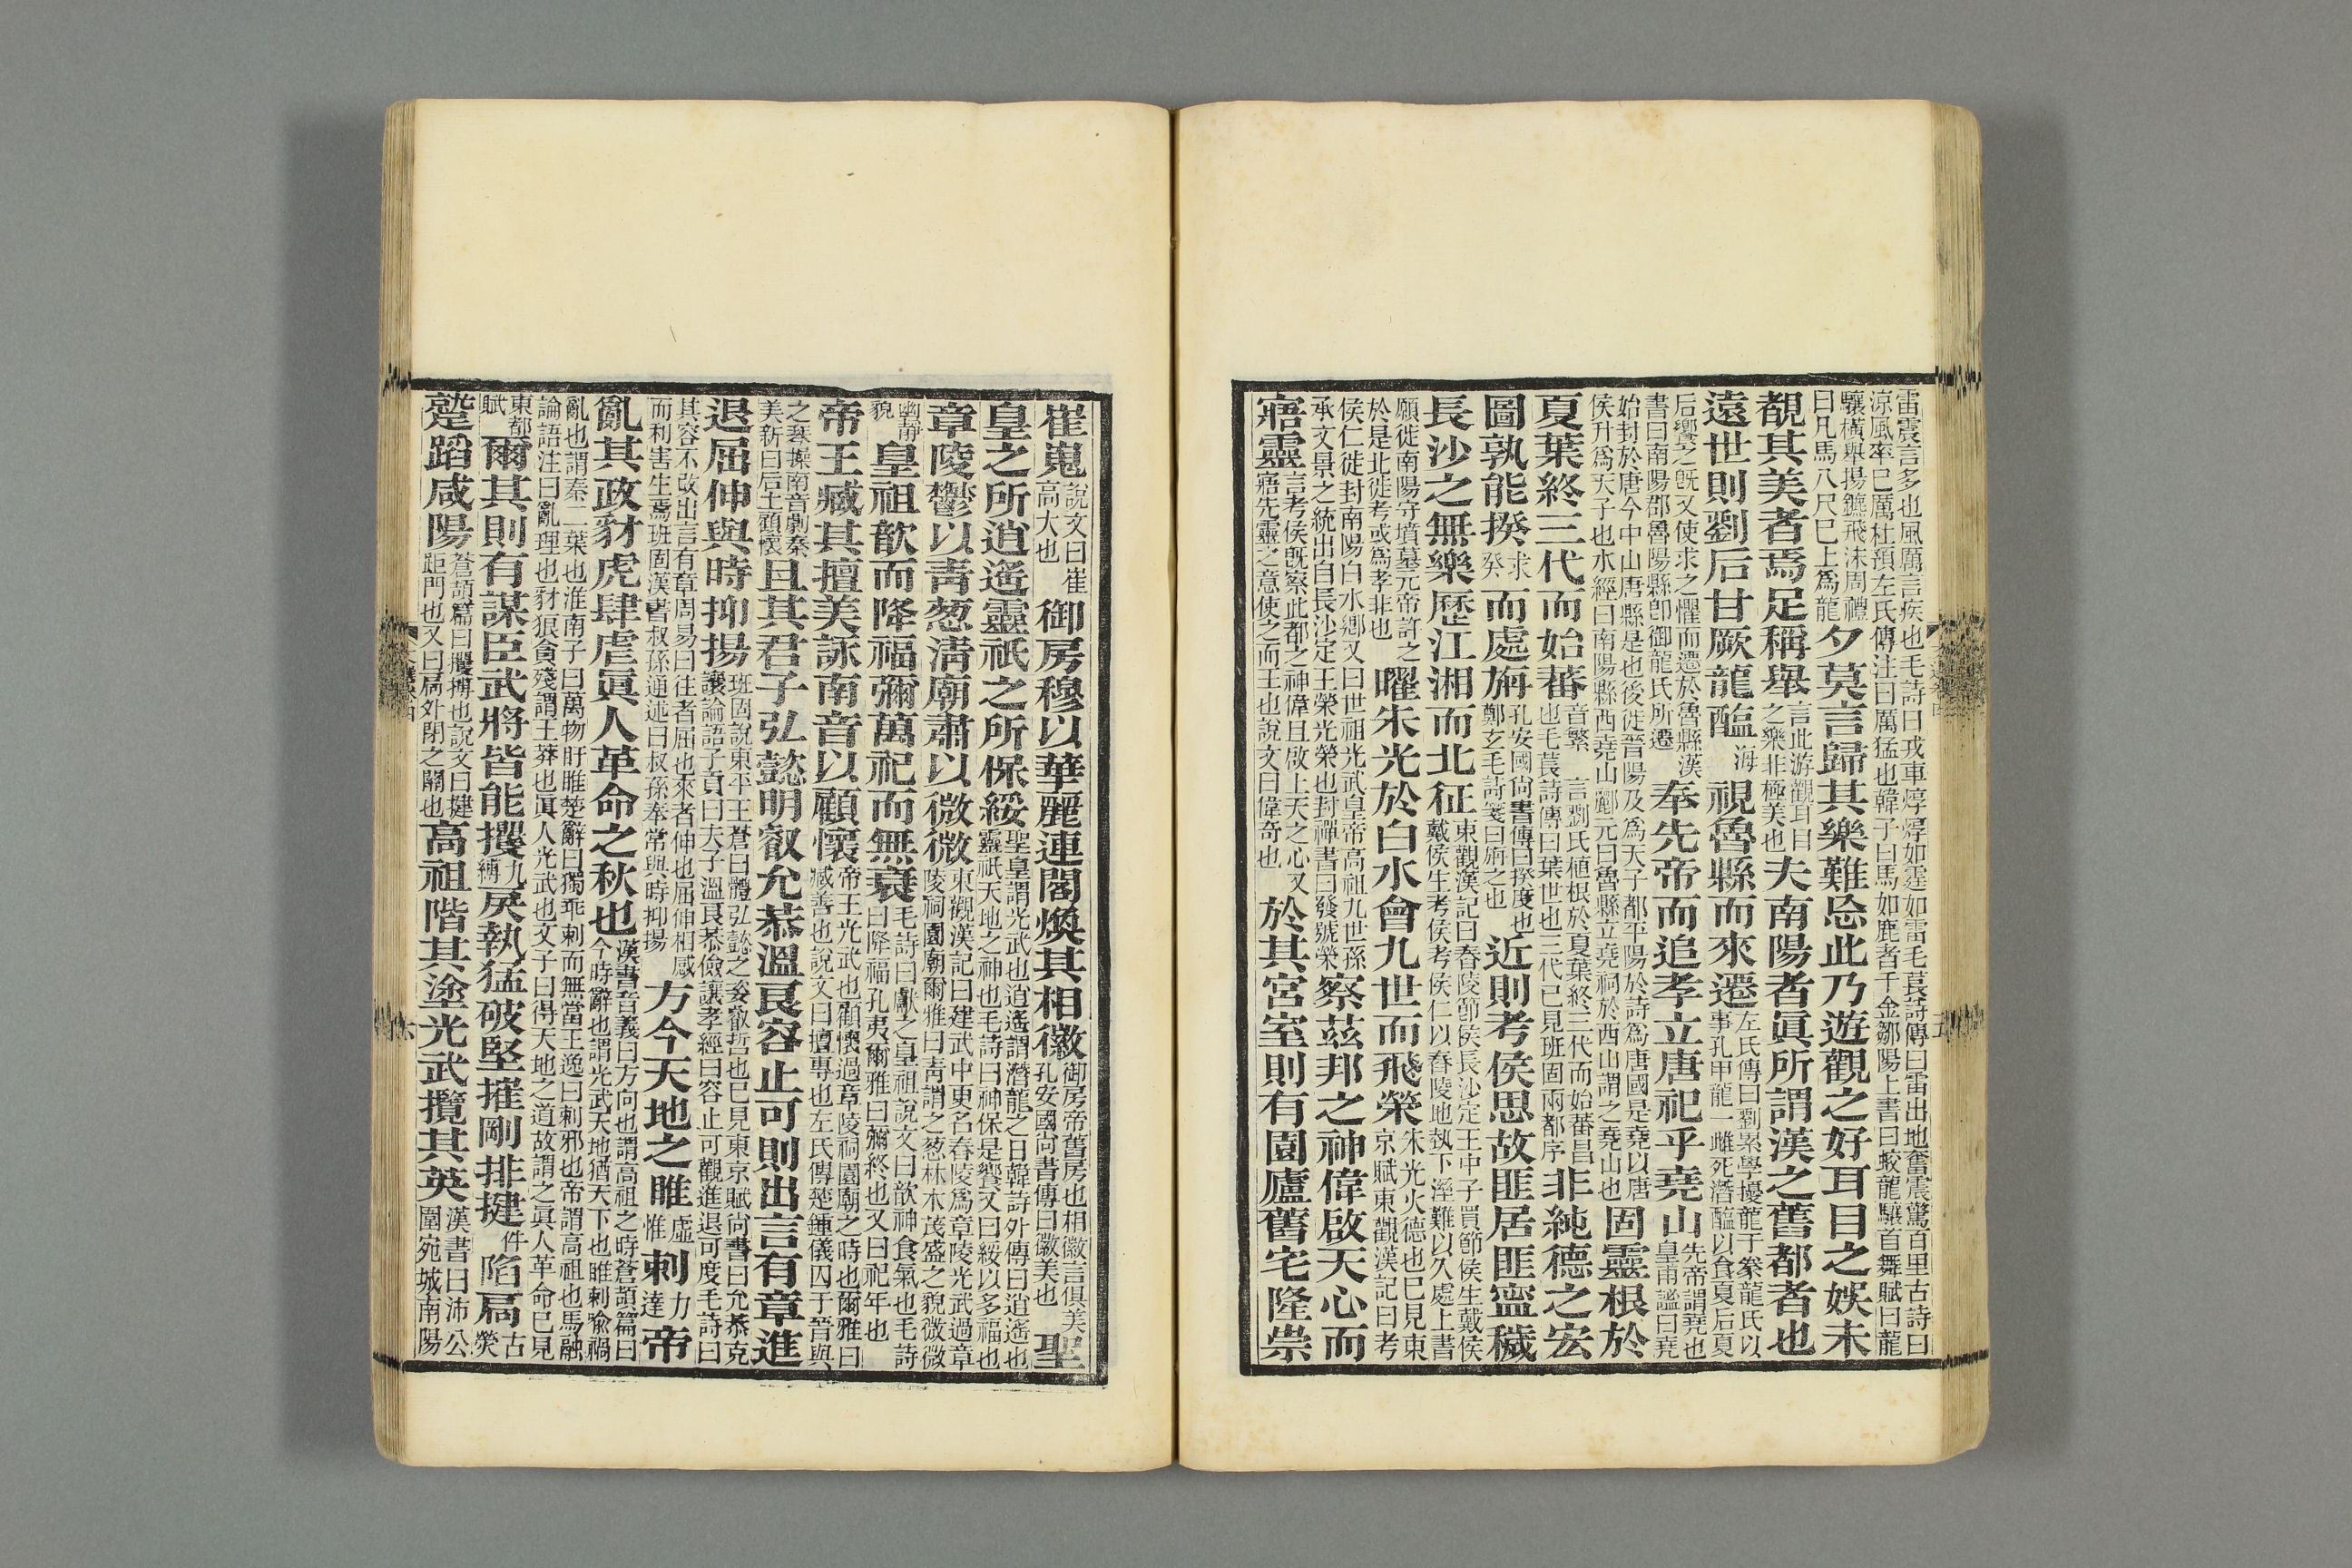 雷震言多也風厲言疾也毛詩曰戎車焞焞如霆如雷毛萇詩傳曰雷出地奮震驚百里古詩曰
涼風率已厲杜預左氏傳注曰厲猛也韓子曰馬如鹿者千金鄒陽上書曰蛟龍驤首舞賦曰龍
驤橫舉揚鑣飛沫周禮曰凡馬八尺已上爲龍夕莫言歸其樂難忘此乃遊觀之好耳目之娛未
覩其美者焉足稱舉言此游觀耳目之樂非極美也夫南陽者眞所謂漢之舊都者也
遠世則劉后甘厥龍醢海視魯縣而來遷左氏傳曰劉累學擾龍于豢龍氏以事孔甲龍一雌死潛醢以食夏后夏
后饗之旣又使求之懼而遷於魯縣漢書曰南陽郡魯陽縣卽御龍氏所遷奉先帝而追孝立唐祀乎堯山先帝謂堯也皇甫謐曰堯
始封於唐今中山唐縣是也後徙晉陽及爲天子都平陽於詩爲唐國是堯以唐侯升爲天子也水經曰南陽縣西堯山酈元曰魯縣立堯祠於西山謂之堯山也固靈根於
夏葉終三代而始蕃音繁言劉氏植根於夏葉終三代而始蕃昌也毛萇詩傳曰葉世也三代已見班固兩都序非純德之宏
圖孰能揆求癸而處旃孔安國尚書傳曰揆度也鄭玄毛詩箋曰旃之也近則考侯思故匪居匪寧穢
長沙之無樂歷江湘而北征東觀漢記曰舂陵節侯長沙定王中子買節侯生戴侯戴侯生考侯考侯仁以舂陵地埶下溼難以久處上書
願徙南陽守墳墓元帝許之於是北徙考或爲孝非也曜朱光於白水會九世而飛榮朱光火德也已見東京賦東觀漢記曰考
侯仁徙封南陽白水鄉又曰世祖光武皇帝高祖九世孫承文景之統出自長沙定王榮光榮也封禪書曰發號榮察茲邦之神偉啟天心而
寤靈言考侯旣察此都之神偉且啟上天之心又寤先靈之意使之而王也說文曰偉奇也於其宮室則有園廬舊宅隆崇
崔嵬說文曰崔高大也御房穆以華麗連閣煥其相徽御房帝舊房也相徽言俱美孔安國尚書傳曰徽美也聖
皇之所逍遙靈祇之所保綏聖皇謂光武也逍遙謂潛龍之日韓詩外傳曰逍遙也靈祇天地之神也毛詩曰神保是饗又曰綏以多福也
章陵鬱以靑葱淸廟肅以微微東觀漢記曰建武中更名舂陵爲章陵光武過章陵祠園廟爾雅曰靑謂之葱林木茂盛之貌微微
幽靜貌皇祖歆而降福彌萬祀而無衰毛詩曰獻之皇祖說文曰歆神食氣也毛詩曰降福孔夷爾雅曰彌終也又曰祀年也
帝王臧其擅美詠南音以顧懷帝王光武也顧懷過章陵祠園廟之時也爾雅曰臧善也說文曰擅專也左氏傳楚鍾儀囚于晉與
之琴操南音劇秦美新曰后土顧懷且其君子弘懿明叡允恭溫良容止可則出言有章進
退屈伸與時抑揚班固說東平王蒼曰體弘懿之姿叡哲也已見東京賦尚書曰允恭克讓論語子貢曰夫子溫良恭儉讓孝經曰容止可觀進退可度毛詩曰
其容不改出言有章周易曰往者屈也來者伸也屈伸相感而利害生焉班固漢書叔孫通述曰叔孫奉常與時抑揚方今天地之睢虛惟剌力達帝
亂其政豺虎肆虐眞人革命之秋也漢書音義曰方向也謂高祖之時蒼頡篇曰今時辭也謂光武天地猶天下也睢剌喻禍
亂也謂秦二葉也淮南子曰萬物盱睢楚辭曰獨乖剌而無當王逸曰剌邪也帝謂高祖也馬融
論語注曰亂理也豺狼貪殘謂王莽也眞人光武也文子曰得天地之道故謂之眞人革命已見
東都賦爾其則有謀臣武將皆能攫九縛戾執猛破堅摧剛排揵件陷扃古熒
蹵蹈咸陽蒼頡篇曰攫搏也說文曰揵距門也又曰扃外閉之關也高祖階其塗光武攬其英漢書曰沛公圍宛城南陽